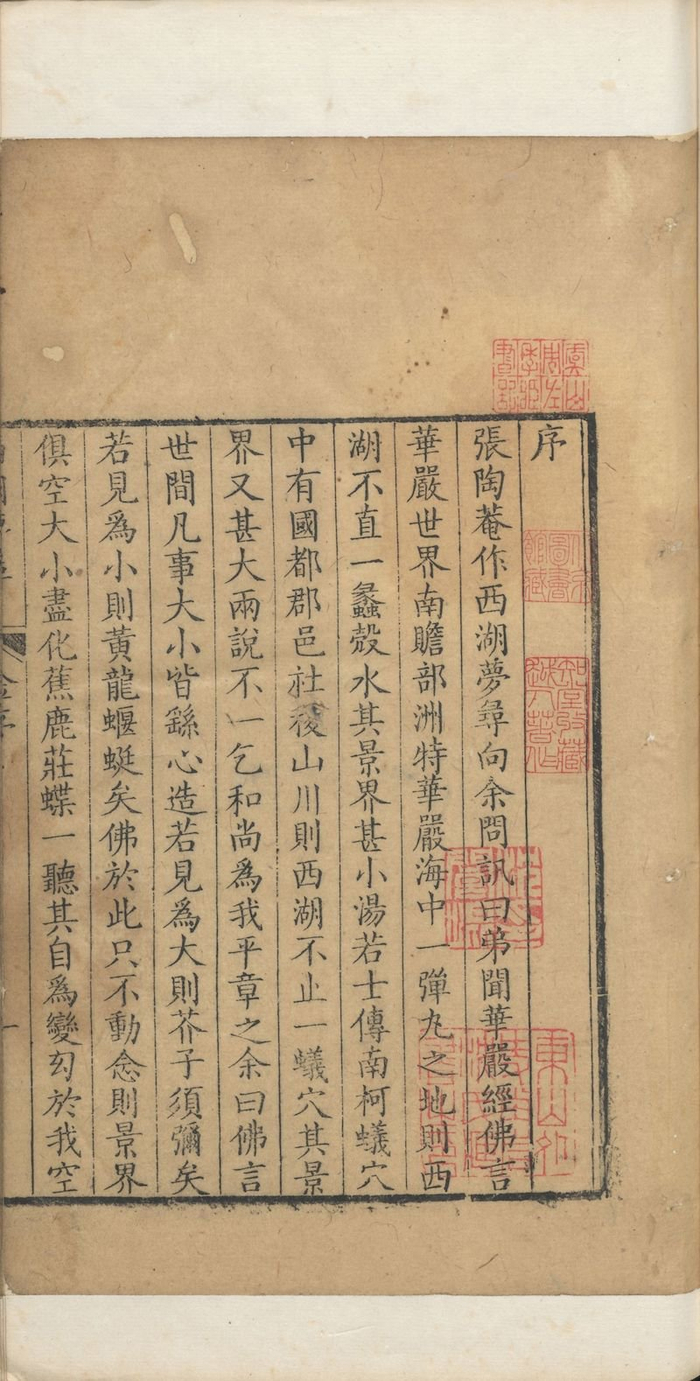 序
張陶菴作西湖夢尋向余問訊曰弟聞華嚴經佛言
華嚴世界南贍部洲特華嚴海中一彈丸之地則西
湖不直一蠡殼水其景界甚小湯若士傳南柯蟻穴
中有國都郡邑社稷山川則西湖不止一蟻穴其景
界又甚大兩說不一乞和尚爲我平章之余曰佛言
世間凡事大小皆繇心造若見爲大則芥子須彌矣
若見爲小則黃龍蝘蜓矣佛於此只不動念則景界
俱空大小盡化蕉鹿莊蝶一聽其自爲變幻於我空
虞山周左季郎書記
知堂收藏越人著作